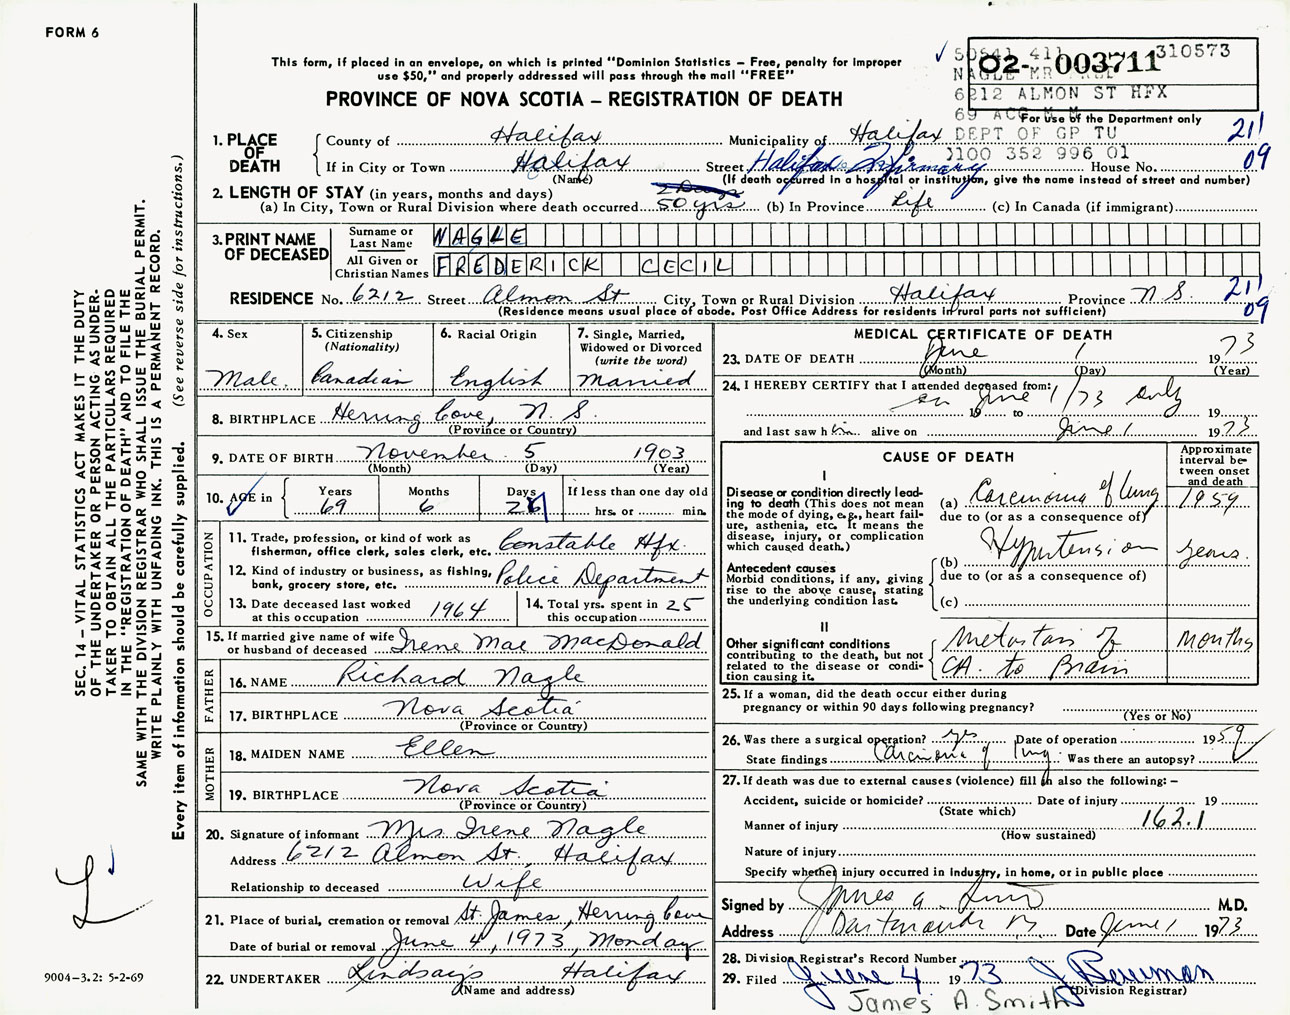 FORM 6
This form, if placed in an envelope, on which is printed "Dominion Statistics – Free, penalty for improper
use $50," and properly addressed will pass through the mail "FREE"
PROVINCE OF NOVA SCOTIA – REGISTRATION OF DEATH
310573
02- 003711
6212 ALMON ST HFX
For use of the Department only
DEPT OF GP TU
100 352 996 01
211
09
1. PLACE OF DEATH
County of Halifax Municipality of Halifax
If in City or Town Halifax Street Halifax Infirmary House No.
(Name) (If death occurred in a hospital or institution, give the name instead of street and number)
2. LENGTH OF STAY (in years, months and days)
2 Days
(a) In City, Town or Rural Division where death occurred 50 yrs (b) In Province Life (c) In Canada (if immigrant)
3. PRINT NAME OF DECEASED
Surname or Last Name NAGLE
All Given or Christian Names FREDERICK CECIL
RESIDENCE No. 6212 Street Almon St City, Town or Rural Division Halifax Province N.S. 211
(Residence means usual place of abode. Post Office Address for residents in rural parts not sufficient) 09
4. Sex
Male.
5. Citizenship (Nationality)
Canadian
6. Racial Origin
English
7. Single, Married, Widowed or Divorced (write the word)
Married
8. BIRTHPLACE Herring Cove, N.S.
(Province or Country)
9. DATE OF BIRTH November 5 1903
(Month) (Day) (Year)
10. AGE in
Years 69
Months 6
Days 26
If less than one day old
hrs. or min.
OCCUPATION
11. Trade, profession, or kind of work as
fisherman, office clerk, sales clerk, etc. Constable Hfx.
12. Kind of industry or business, as fishing,
bank, grocery store, etc. Police Department
13. Date deceased last worked
at this occupation 1964
14. Total yrs. spent in
this occupation 25
15. If married give name of wife
or husband of deceased Irene Mae MacDonald
FATHER
16. NAME Richard Nagle
17. BIRTHPLACE Nova Scotia
(Province or Country)
MOTHER
18. MAIDEN NAME Ellen
19. BIRTHPLACE Nova Scotia
(Province or Country)
20. Signature of informant Mrs Irene Nagle
Address 6212 Almon St., Halifax
Relationship to deceased Wife
21. Place of burial, cremation or removal St. James, Herring Cove
Date of burial or removal June 4, 1973, Monday
22. UNDERTAKER Lindsay's Halifax
(Name and address)
MEDICAL CERTIFICATE OF DEATH
23. DATE OF DEATH June 1 1973
(Month) (Day) (Year)
24. I HEREBY CERTIFY that I attended deceased from:
on June 1/73 only
19 to 19
and last saw him alive on June 1 1973
CAUSE OF DEATH
Approximate interval between onset and death
I
Disease or condition directly lead-
ing to death (This does not mean
the mode of dying, e.g., heart fail-
ure, asthenia, etc. It means the
disease, injury, or complication
which caused death.)
(a) Carcinoma of lung 1959
due to (or as a consequence of)
(b) Hypertension years.
due to (or as a consequence of)
(c)
Antecedent causes
Morbid conditions, if any, giving
rise to the above cause, stating
the underlying condition last.
II
Other significant conditions
contributing to the death, but not
related to the disease or condi-
tion causing it.
Metastasis of
CA. to Brain
Months
25. If a woman, did the death occur either during
pregnancy or within 90 days following pregnancy?
(Yes or No)
26. Was there a surgical operation? yes Date of operation 1959
State findings Carcinoma of lung. Was there an autopsy?
27. If death was due to external causes (violence) fill in also the following:–
Accident, suicide or homicide? Date of injury 19
(State which)
Manner of injury 162.1
(How sustained)
Nature of injury
Specify whether injury occurred in industry, in home, or in public place
Signed by James A. Smith M.D.
Address Dartmouth Date June 1 1973
28. Division Registrar's Record Number
29. Filed June 4 1973 J Bowman
(Division Registrar)
James A. Smith
SEC. 14 – VITAL STATISTICS ACT MAKES IT THE DUTY
OF THE UNDERTAKER OR PERSON ACTING AS UNDER-
TAKER TO OBTAIN ALL THE PARTICULARS REQUIRED
IN THE "REGISTRATION OF DEATH" AND TO FILE THE
SAME WITH THE DIVISION REGISTRAR WHO SHALL ISSUE THE BURIAL PERMIT.
WRITE PLAINLY WITH UNFADING INK. THIS IS A PERMANENT RECORD.
Every item of information should be carefully supplied. (See reverse side for instructions.)
L
9004-3.2: 5-2-69